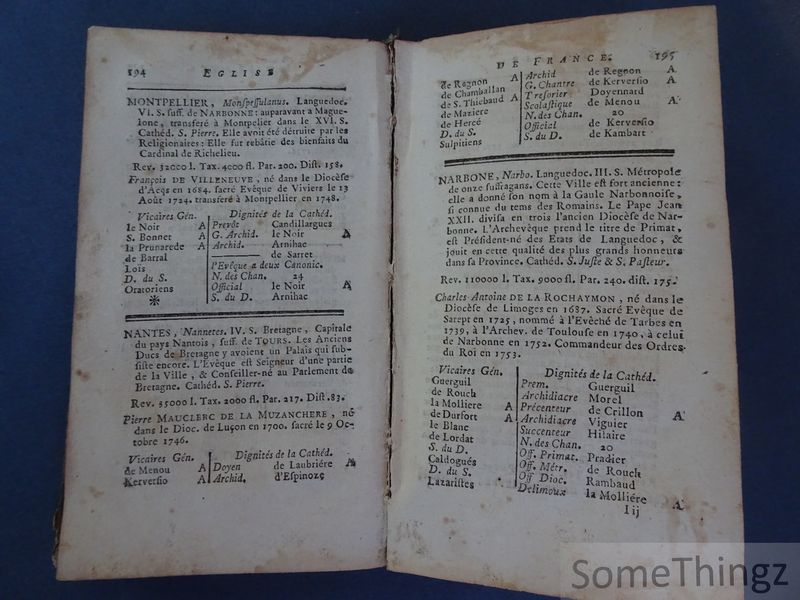 194 EGLISE
MONTPELLIER, Monspessulanus. Languedoc.
VI. S. suff. de NARBONNE: auparavant à Mague-
lone, transferé à Montpelier dans le XVI. S.
Cathéd. S. Pierre. Elle avoit été détruite par les
Religionaires: Elle fut rebâtie des bienfaits du
Cardinal de Richelieu.
Rev. 32000 l. Tax. 4000 fl. Par. 200. Dist. 158.
François DE VILLENEUVE, né dans le Diocèse
d'Acqs en 1684. sacré Evêque de Viviers le 13
Août 1724. transferé à Montpellier en 1748.
Vicaires Gén. Dignités de la Cathéd.
le Noir A Prevôt Candillargues
S. Bonnet A G. Archid. le Noir A
la Prunarede A Archid. Arnihac
de Barral de Sarret
Lois l'Evêque a deux Canonic.
D. du S. N. des Chan. 24
Oratoriens Official le Noir A
* S. du D. Arnihac
NANTES, Nannetes. IV. S. Bretagne, Capitale
du pays Nantois, suff. de TOURS. Les Anciens
Ducs de Bretagne y avoient un Palais qui sub-
siste encore. L'Evêque est Seigneur d'une partie
de la Ville, & Conseiller-né au Parlement de
Bretagne. Cathéd. S. Pierre.
Rev. 35000 l. Tax. 2000 fl. Par. 217. Dist. 83.
Pierre MAUCLERC DE LA MUZANCHERE, né
dans le Dioc. de Luçon en 1700. sacré le 9 Oc-
tobre 1746.
Vicaires Gén. Dignités de la Cathéd.
de Menou A Doyen de Laubriére A
Kerversio A Archid. d'Espinoze
DE FRANCE. 195
de Regnon A Archid de Regnon A
de Chamballan G. Chantre de Kerversio A
de S. Thiebaud A Tresorier Doyennard
de Maziere Scolastique de Menou A
de Hercé N. des Chan. 20
D. du S. Official de Kerversio
Sulpitiens S. du D. de Kambart
NARBONE, Narbo. Languedoc. III. S. Métropole
de onze suffragans. Cette Ville est fort ancienne:
elle a donné son nom à la Gaule Narbonnoise,
si connue du tems des Romains. Le Pape Jean
XXII. divisa en trois l'ancien Diocèse de Nar-
bonne. L'Archevêque prend le titre de Primat,
est Président-né des Etats de Languedoc, &
jouit en cette qualité des plus grands honneurs
dans sa Province. Cathéd. S. Juste & S. Pasteur.
Rev. 110000 l. Tax. 9000 fl. Par. 240. dist. 175.
Charles-Antoine DE LA ROCHAYMON, né dans le
Diocèse de Limoges en 1687. Sacré Evêque de
Sarept en 1725, nommé à l'Evêché de Tarbes en
1739, à l'Archev. de Toulouse en 1740, à celui
de Narbonne en 1752. Commandeur des Ordres
du Roi en 1753.
Vicaires Gén. Dignités de la Cathéd.
Guerguil Prem. Guerguil
de Rouch Archidiacre Morel
la Molliere A Précenteur de Crillon A
de Durfort A Archidiacre Viguier
le Blanc Succenteur Hilaire
de Lordat N. des Chan. 20
S. du D. Off. Primat. Pradier
Caldogués Off. Métr. de Rouch
D. du S. Off Dioc. Rambaud
Lazaristes Delimoux la Molliére A
I ij
SomeThingz